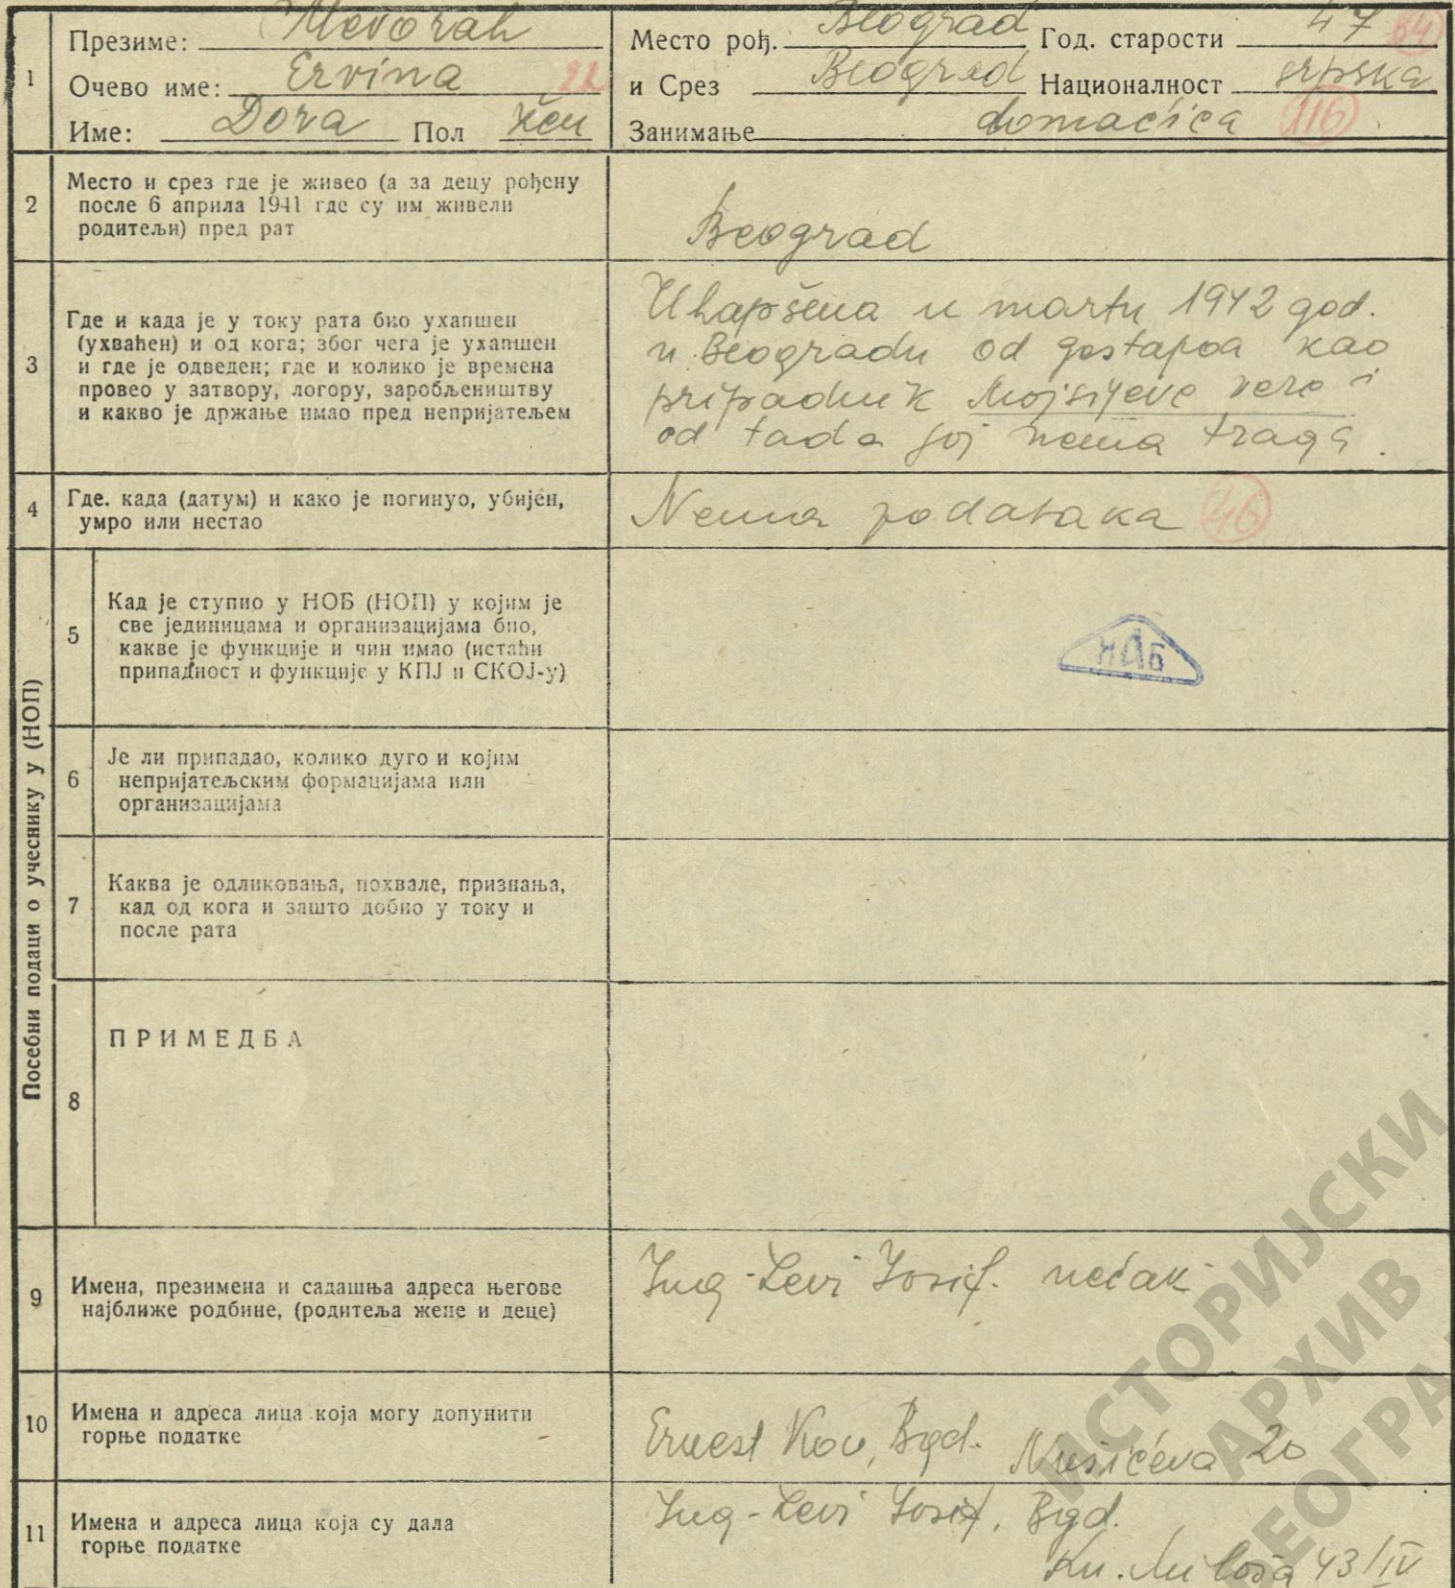 1
Презиме: Mevorah
Очево име: Ervina 22
Име: Dora Пол žen
Место рођ. Beograd Год. старости 47 84
и Срез Beograd Националност srpska
Занимање domaćica 116
2
Место и срез где је живео (а за децу рођену
после 6 априла 1941 где су им живели
родитељи) пред рат
Beograd
3
Где и када је у току рата био ухапшен
(ухваћен) и од кога; због чега је ухапшен
и где је одведен; где и колико је времена
провео у затвору, логору, заробљеништву
и какво је држање имао пред непријатељем
Uhapšena u martu 1942 god.
u Beogradu od gestapoa kao
pripadnik Mojsijeve vere i
od tada joj nema traga.
4
Где. када (датум) и како је погинуо, убијен,
умро или нестао
Nema podataka 46
Посебни подаци о учеснику у (НОП)
5
Кад је ступио у НОБ (НОП) у којим је
све јединицама и организацијама био,
какве је функције и чин имао (истаћи
припадност и функције у КПЈ и СКОЈ-у)
ИАБ
6
Је ли припадао, колико дуго и којим
непријатељским формацијама или
организацијама
7
Каква је одликовања, похвале, признања,
кад од кога и зашто добио у току и
после рата
8
ПРИМЕДБА
9
Имена, презимена и садашња адреса његове
најближе родбине, (родитеља жене и деце)
Ing-Levi Josif. nećak
10
Имена и адреса лица која могу допунити
горње податке
Ernest Kov, Bgd. Nušićeva 20
11
Имена и адреса лица која су дала
горње податке
Ing-Levi Josif, Bgd.
Kn. Miloša 43/IV
ИСТОРИЈСКИ
АРХИВ
БЕОГРА